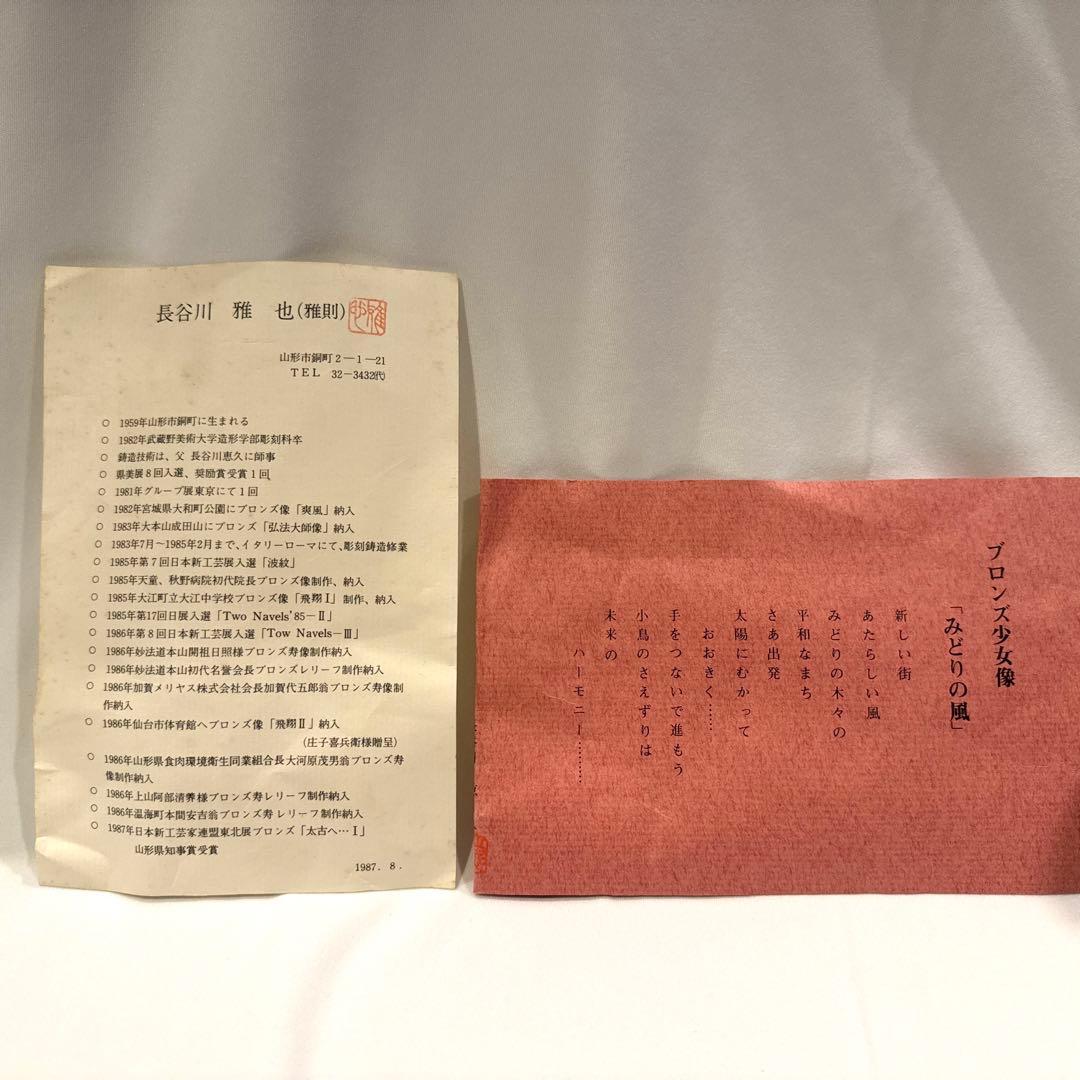 長谷川 雅 也(雅則)
山形市銅町2―1―21
TEL 32―3432㈹
○ 1959年山形市銅町に生まれる
○ 1982年武蔵野美術大学造形学部彫刻科卒
○ 鋳造技術は、父 長谷川恵久に師事
○ 県美展8回入選、奨励賞受賞1回
○ 1981年グループ展東京にて1回
○ 1982年宮城県大和町公園にブロンズ像「爽風」納入
○ 1983年大本山成田山にブロンズ「弘法大師像」納入
○ 1983年7月~1985年2月まで、イタリーローマにて、彫刻鋳造修業
○ 1985年第7回日本新工芸展入選「波紋」
○ 1985年天童、秋野病院初代院長ブロンズ像制作、納入
○ 1985年大江町立大江中学校ブロンズ像「飛翔Ⅰ」制作、納入
○ 1985年第17回日展入選「Two Navels'85―Ⅱ」
○ 1986年第8回日本新工芸展入選「Tow Navels―Ⅲ」
○ 1986年妙法道本山開祖日照様ブロンズ寿像制作納入
○ 1986年妙法道本山初代名誉会長ブロンズレリーフ制作納入
○ 1986年加賀メリヤス株式会社会長加賀代五郎翁ブロンズ寿像制
作納入
○ 1986年仙台市体育館へブロンズ像「飛翔Ⅱ」納入
(庄子喜兵衛様贈呈)
○ 1986年山形県食肉環境衛生同業組合長大河原茂男翁ブロンズ寿
像制作納入
○ 1986年上山阿部清様ブロンズ寿レリーフ制作納入
○ 1986年温海町本間安吉翁ブロンズ寿レリーフ制作納入
○ 1987年日本新工芸家連盟東北展ブロンズ「太古へ…Ⅰ」
山形県知事賞受賞
1987. 8.
ブロンズ少女像
「みどりの風」
新しい街
あたらしい風
みどりの木々の
平和なまち
さあ出発
太陽にむかって
おおきく……
手をつないで進もう
小鳥のさえずりは
未来の
ハーモニー………